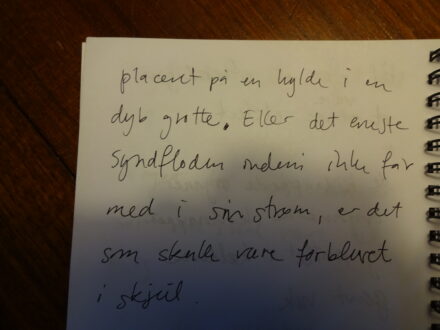 placeret på en hylde i en
dyb grotte. Eller det eneste
Syndfloden indeni ikke får
med i sin strøm, er det
som skulle være forblevet
i skjul.